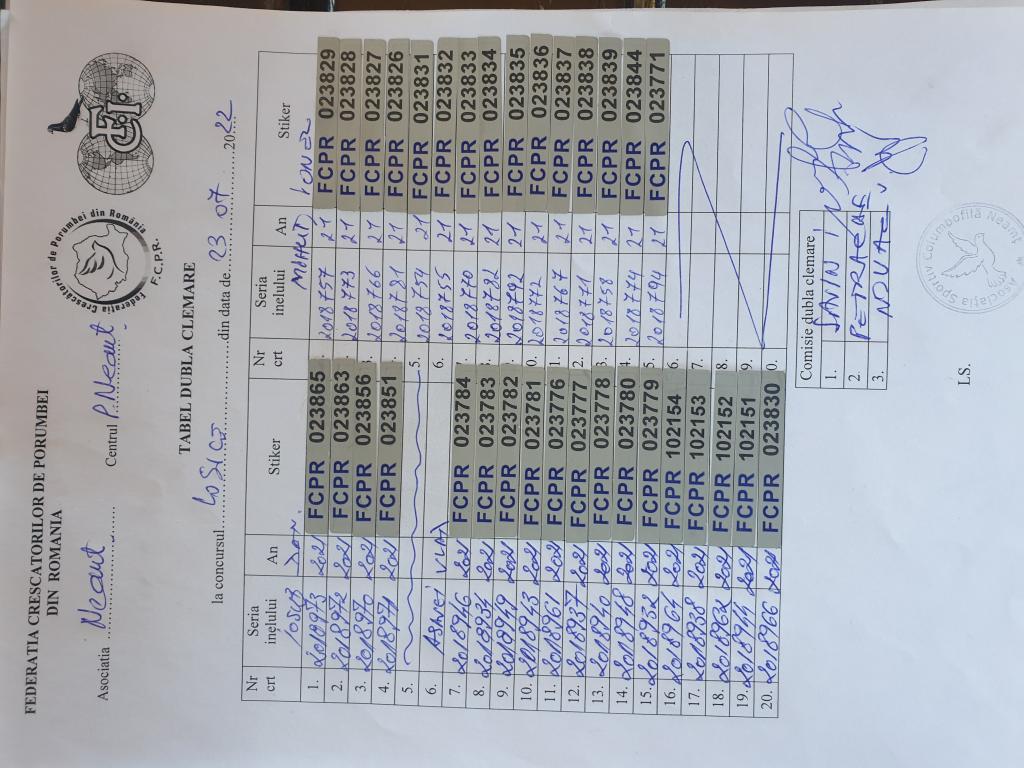 FEDERATIA CRESCATORILOR DE PORUMBEI
DIN ROMANIA
Federația Crescătorilor de Porumbei din România
F.C.P.R.
FCI
Asociatia Neamt Centrul P Neamt
TABEL DUBLA CLEMARE
la concursul din data de 23 07 2022
Nr crt Seria inelului An Stiker Nr crt Seria inelului An Stiker
1. 2018973 2021 FCPR 023865 2018757 21 FCPR 023829
2. 2018972 2021 FCPR 023863 2018773 21 FCPR 023828
3. 2018970 2021 FCPR 023856 2018766 21 FCPR 023827
4. 2018971 2021 FCPR 023851 2018781 21 FCPR 023826
5. 5. 2018754 21 FCPR 023831
6. VLAD 6. 2018755 21 FCPR 023832
7. 2018946 2021 FCPR 023784 2018770 21 FCPR 023833
8. 2018934 2021 FCPR 023783 2018782 21 FCPR 023834
9. 2018949 2021 FCPR 023782 2018792 21 FCPR 023835
10. 2018943 2021 FCPR 023781 0. 2018772 21 FCPR 023836
11. 2018961 2021 FCPR 023776 1. 2018767 21 FCPR 023837
12. 2018937 2021 FCPR 023777 2. 2018771 21 FCPR 023838
13. 2018940 2021 FCPR 023778 3. 2018758 21 FCPR 023839
14. 2018948 2021 FCPR 023780 4. 2018774 21 FCPR 023844
15. 2018932 2021 FCPR 023779 5. 2018794 21 FCPR 023771
16. 2018964 2021 FCPR 102154 6.
17. 2018938 2021 FCPR 102153 7.
18. 2018962 2021 FCPR 102152 8.
19. 2018944 2021 FCPR 102151 9.
20. 2018966 2021 FCPR 023830 0.
Comisie dubla clemare
1. SAVIN I
2. PETRARIU
3. NOVAC
LS.
Asociația Sportiv Columbofilă Neamț